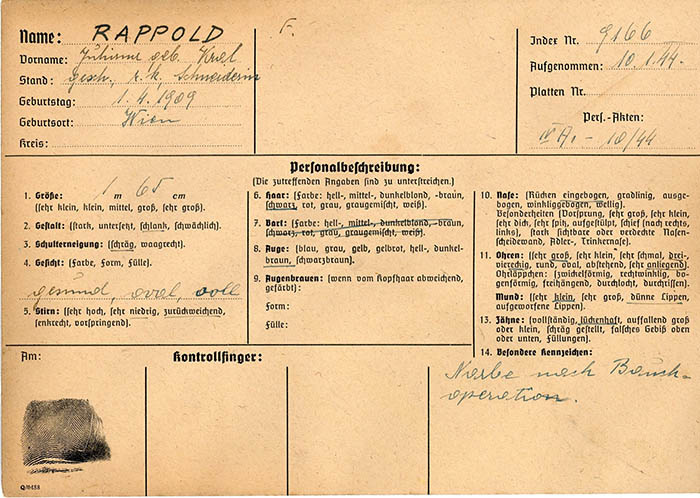 Name: RAPPOLD
Vorname: Juliane geb. Kral
Stand: gesch., r.k., Schneiderin
Geburtstag: 1.4.1909
Geburtsort: Wien
Kreis:
F.
Index Nr. 9166
Aufgenommen: 10.1.44.
Platten Nr.
Pers.-Akten:
IV A, - 10/44
Personalbeschreibung:
(Die zutreffenden Angaben sind zu unterstreichen.)
1. Größe: 1 m 65 cm
(sehr klein, klein, mittel, groß, sehr groß).
2. Gestalt: (stark, untersetzt, schlank, schwächlich).
3. Schulterneigung: (schräg, waagrecht).
4. Gesicht: (Farbe, Form, Fülle).
gesund, oval, voll
5. Stirn: (sehr hoch, sehr niedrig, zurückweichend,
senkrecht, vorspringend).
6. Haar: (Farbe: hell-, mittel-, dunkelblond, -braun,
schwarz, rot, grau, graugemischt, weiß).
7. Bart: (Farbe: hell-, mittel-, dunkelblond, -braun,
schwarz, rot, grau, graugemischt, weiß).
8. Auge: (blau, grau, gelb, gelbrot, hell-, dunkel-
braun, schwarzbraun).
9. Augenbrauen: (wenn vom Kopfhaar abweichend,
gefärbt):
Form:
Fülle:
10. Nase: (Rücken eingebogen, gradlinig, ausge-
bogen, winkliggebogen, wellig).
Besonderheiten (Vorsprung, sehr groß, sehr klein,
sehr dick, sehr spitz, aufgestülpt, schief (nach rechts,
links), stark sichtbare oder verdeckte Nasen-
scheidewand, Adler-, Trinkernase).
11. Ohren: (sehr groß, sehr klein, sehr schmal, drei-,
viereckig, rund, oval, abstehend, sehr anliegend).
Ohrläppchen: (zwickelförmig, rechtwinklig, bo-
genförmig, freihängend, durchlocht, durchrissen).
Mund: (sehr klein, sehr groß, dünne Lippen,
aufgeworfene Lippen).
13. Zähne: (vollständig, lückenhaft, auffallend groß
oder klein, schräg gestellt, falsches Gebiß oben
oder unten, Füllungen).
14. Besondere Kennzeichen:
Narbe nach Bauch-
operation.
Am: Kontrollfinger: